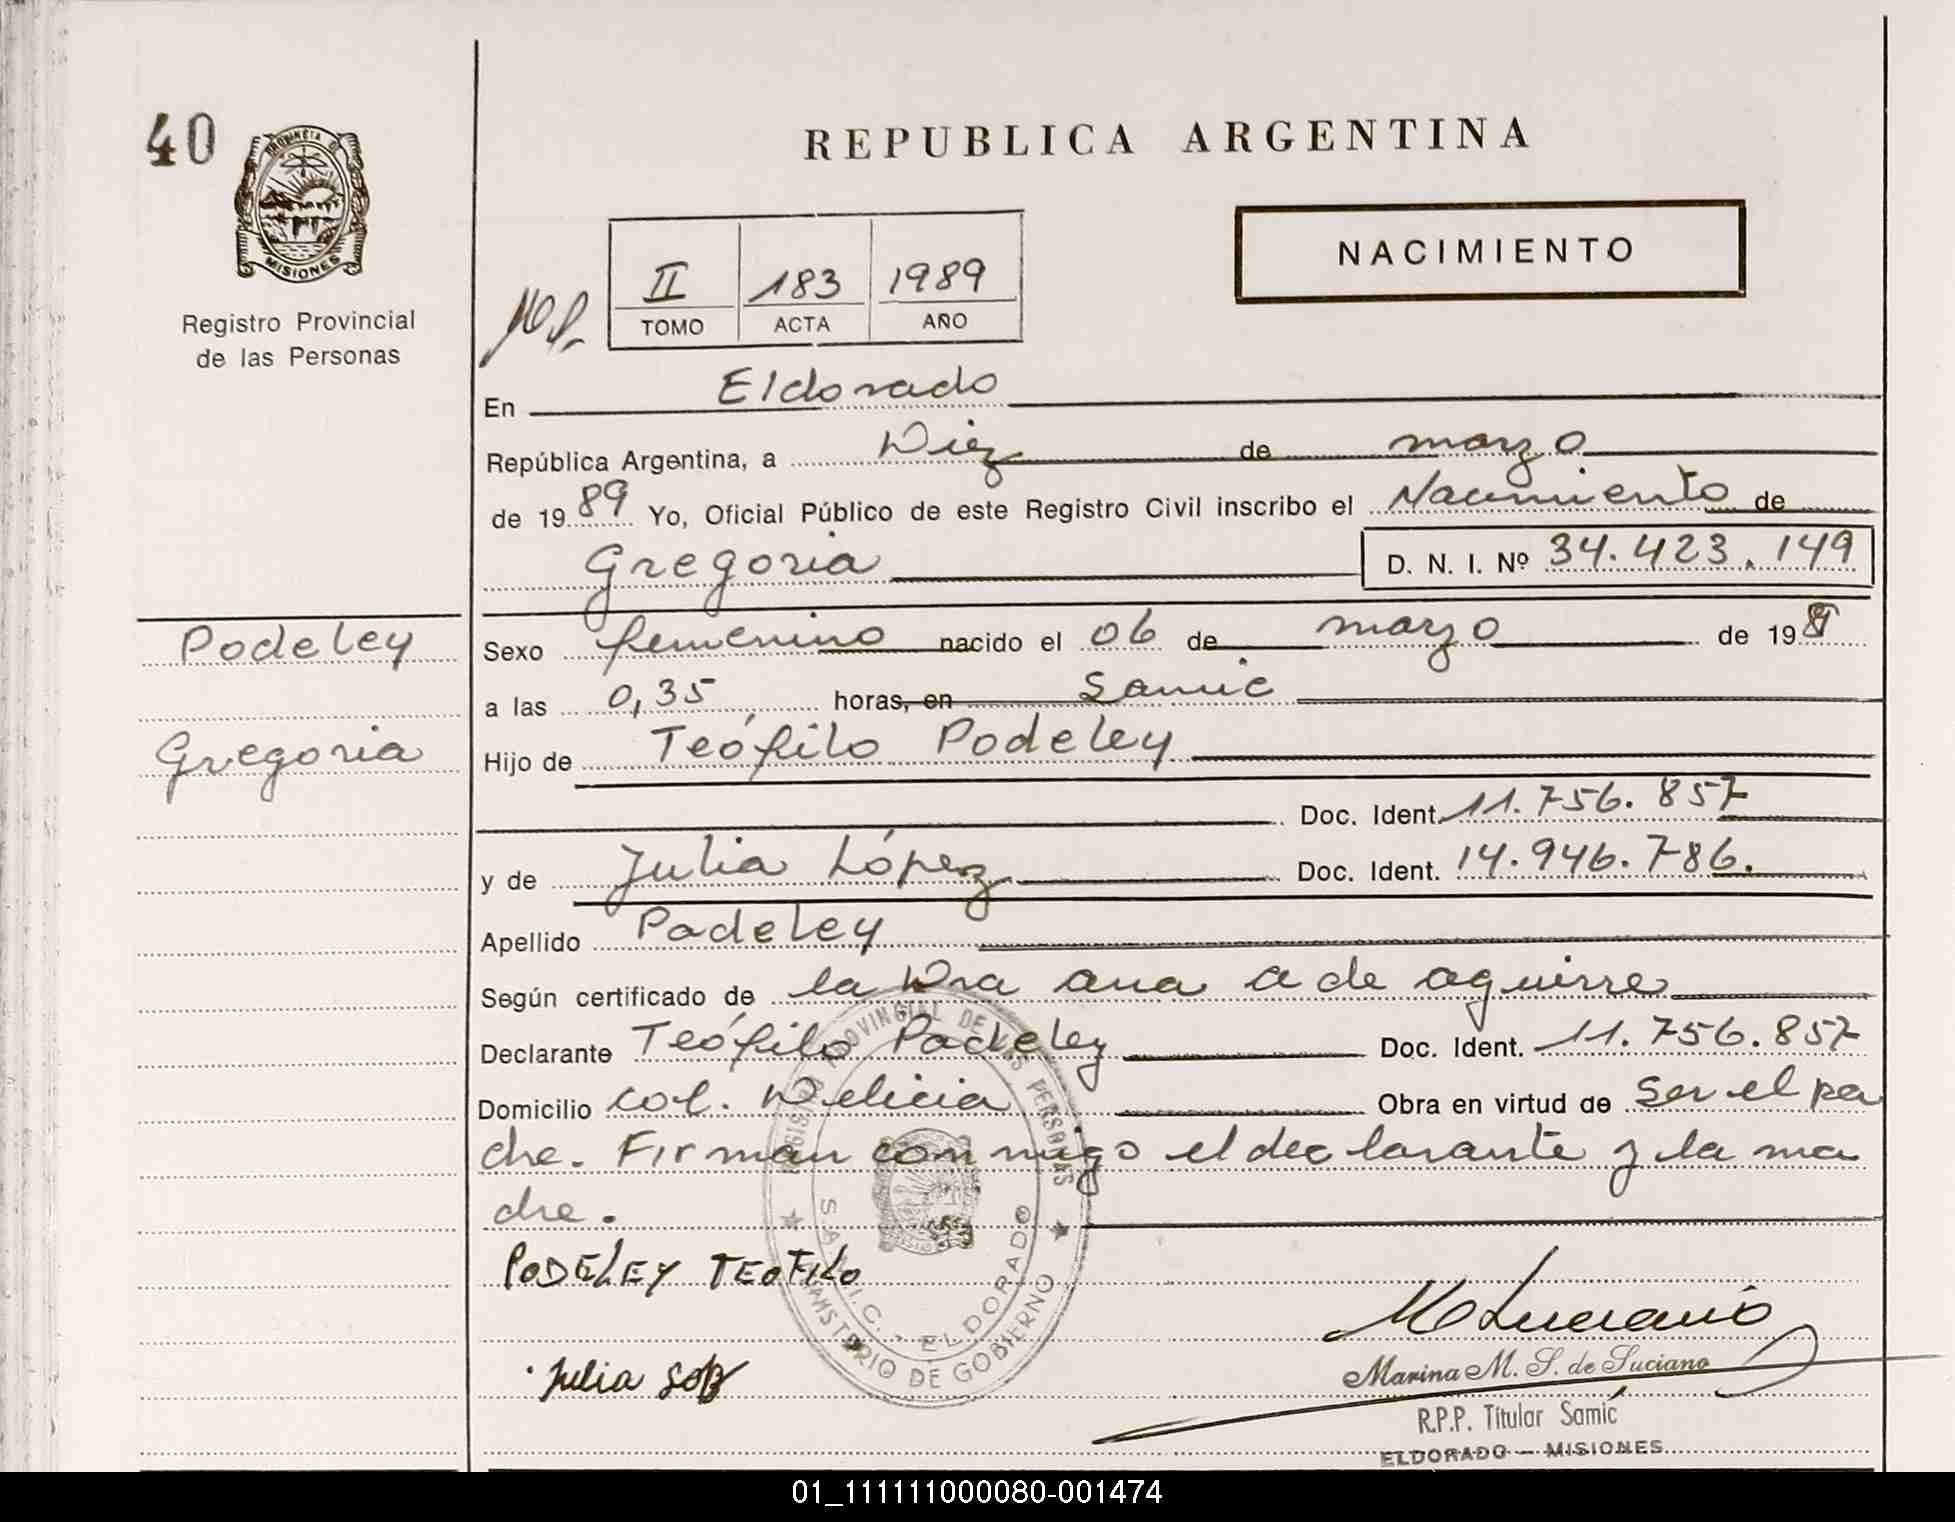 40
PROVINCIA D
MISIONES
Registro Provincial
de las Personas
REPUBLICA ARGENTINA
NACIMIENTO
II 183 1989
TOMO ACTA AÑO
En Eldorado
República Argentina, a Diez de marzo
de 1989 Yo, Oficial Público de este Registro Civil inscribo el Nacimiento de
Gregoria D. N. I. Nº 34.423.149
Podeley
Gregoria
Sexo femenino nacido el 06 de marzo de 19
a las 0,35 horas, en Samic
Hijo de Teófilo Podeley
Doc. Ident. 11.756.857
y de Julia López Doc. Ident. 14.946.786.
Apellido Podeley
Según certificado de la Dra Ana A de Aguirre
Declarante Teófilo Podeley Doc. Ident. 11.756.857
Domicilio col. Delicia Obra en virtud de ser el pa
dre. Firman con migo el declarante y la ma
dre.
PODELEY TEOFILO
Julia
REGISTRO PROVINCIAL DE LAS PERSONAS
S.A.M.I.C. - ELDORADO
MINISTERIO DE GOBIERNO
Marina M. S. de Luciano
R.P.P. Titular Samic
ELDORADO — MISIONES
01_111111000080-001474